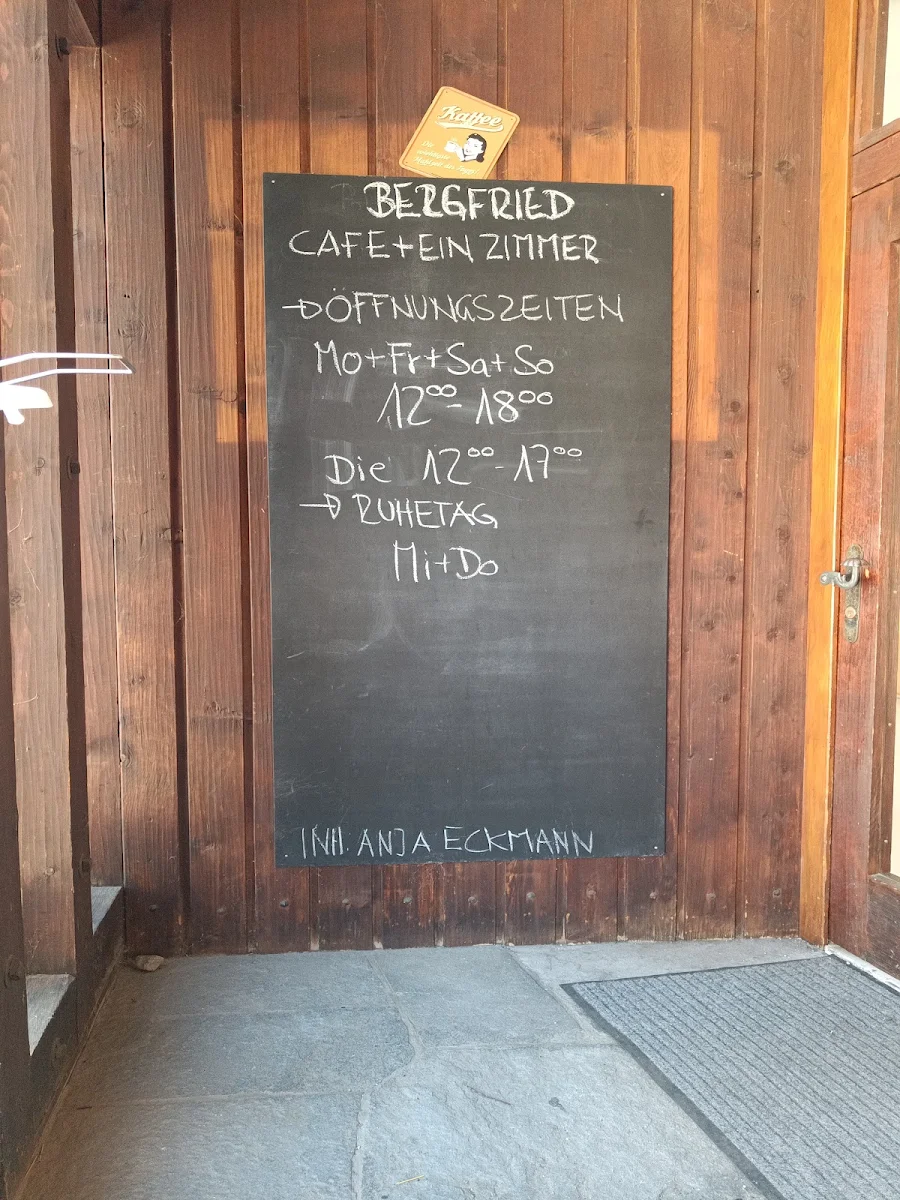 Kaffee
BERGFRIED
CAFE+EIN ZIMMER
→ÖFFNUNGSZEITEN
Mo+Fr+Sa+So
12⁰⁰-18⁰⁰
Die 12⁰⁰-17⁰⁰
→ RUHETAG
Mi+Do
INH. ANJA ECKMANN